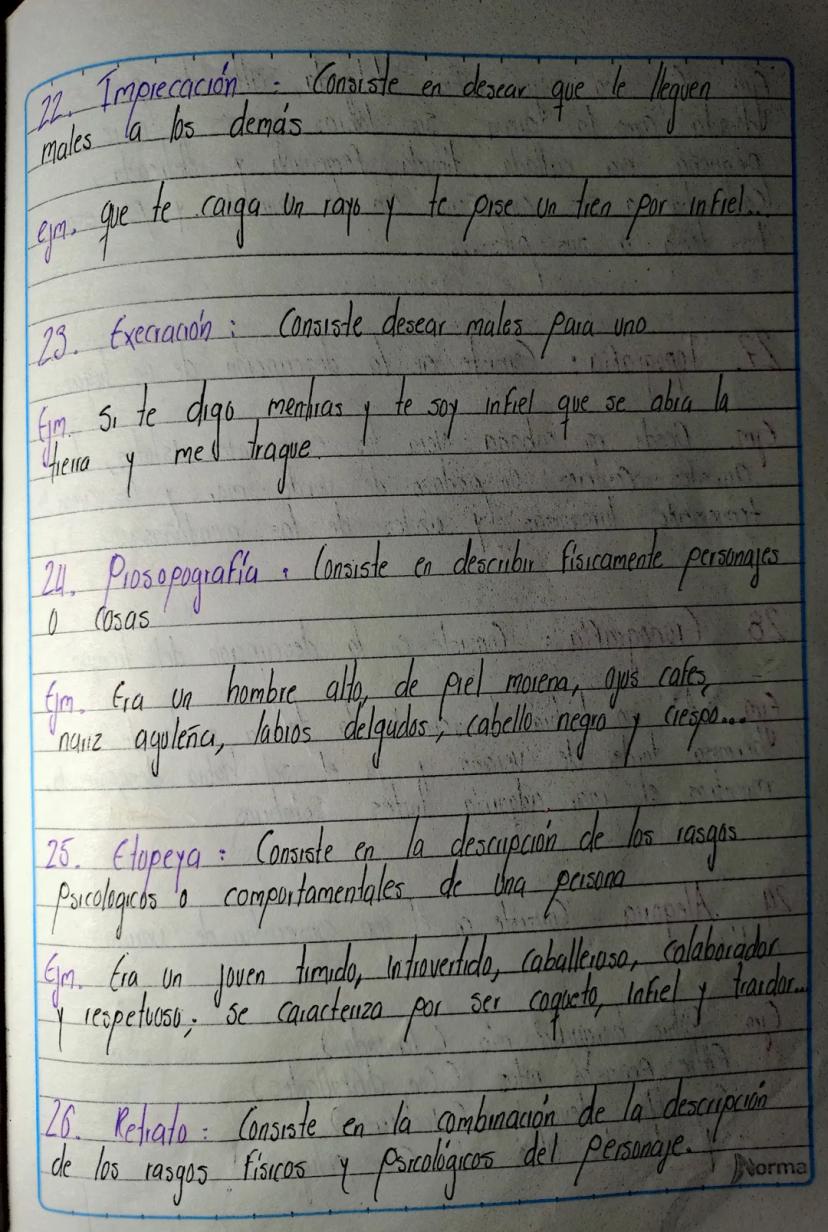 22. Imprecación : Consiste en desear que le lleguen
males a los demás
ejm. que te caiga un rayo y te pise un tren por infiel...
23. Execración : Consiste desear males para uno
Ejm. Si te digo mentiras y te soy infiel que se abra la
tierra y me trague.
24. Prosopografía : Consiste en describir físicamente personajes
o cosas
Ejm. Era un hombre alto, de piel morena, ojos cafes,
nariz aguleña, labios delgados, cabello negro y crespo...
25. Etopeya : Consiste en la descripción de los rasgos
Psicologicos o comportamentales de una persona
Ejm. Era un joven timido, introvertido, caballeroso, colaborador
y respetuoso; se caracteriza por ser coqueto, infiel y traidor...
26. Retrato : Consiste en la combinación de la descripción
de los rasgos físicos y psicológicos del personaje.
Norma